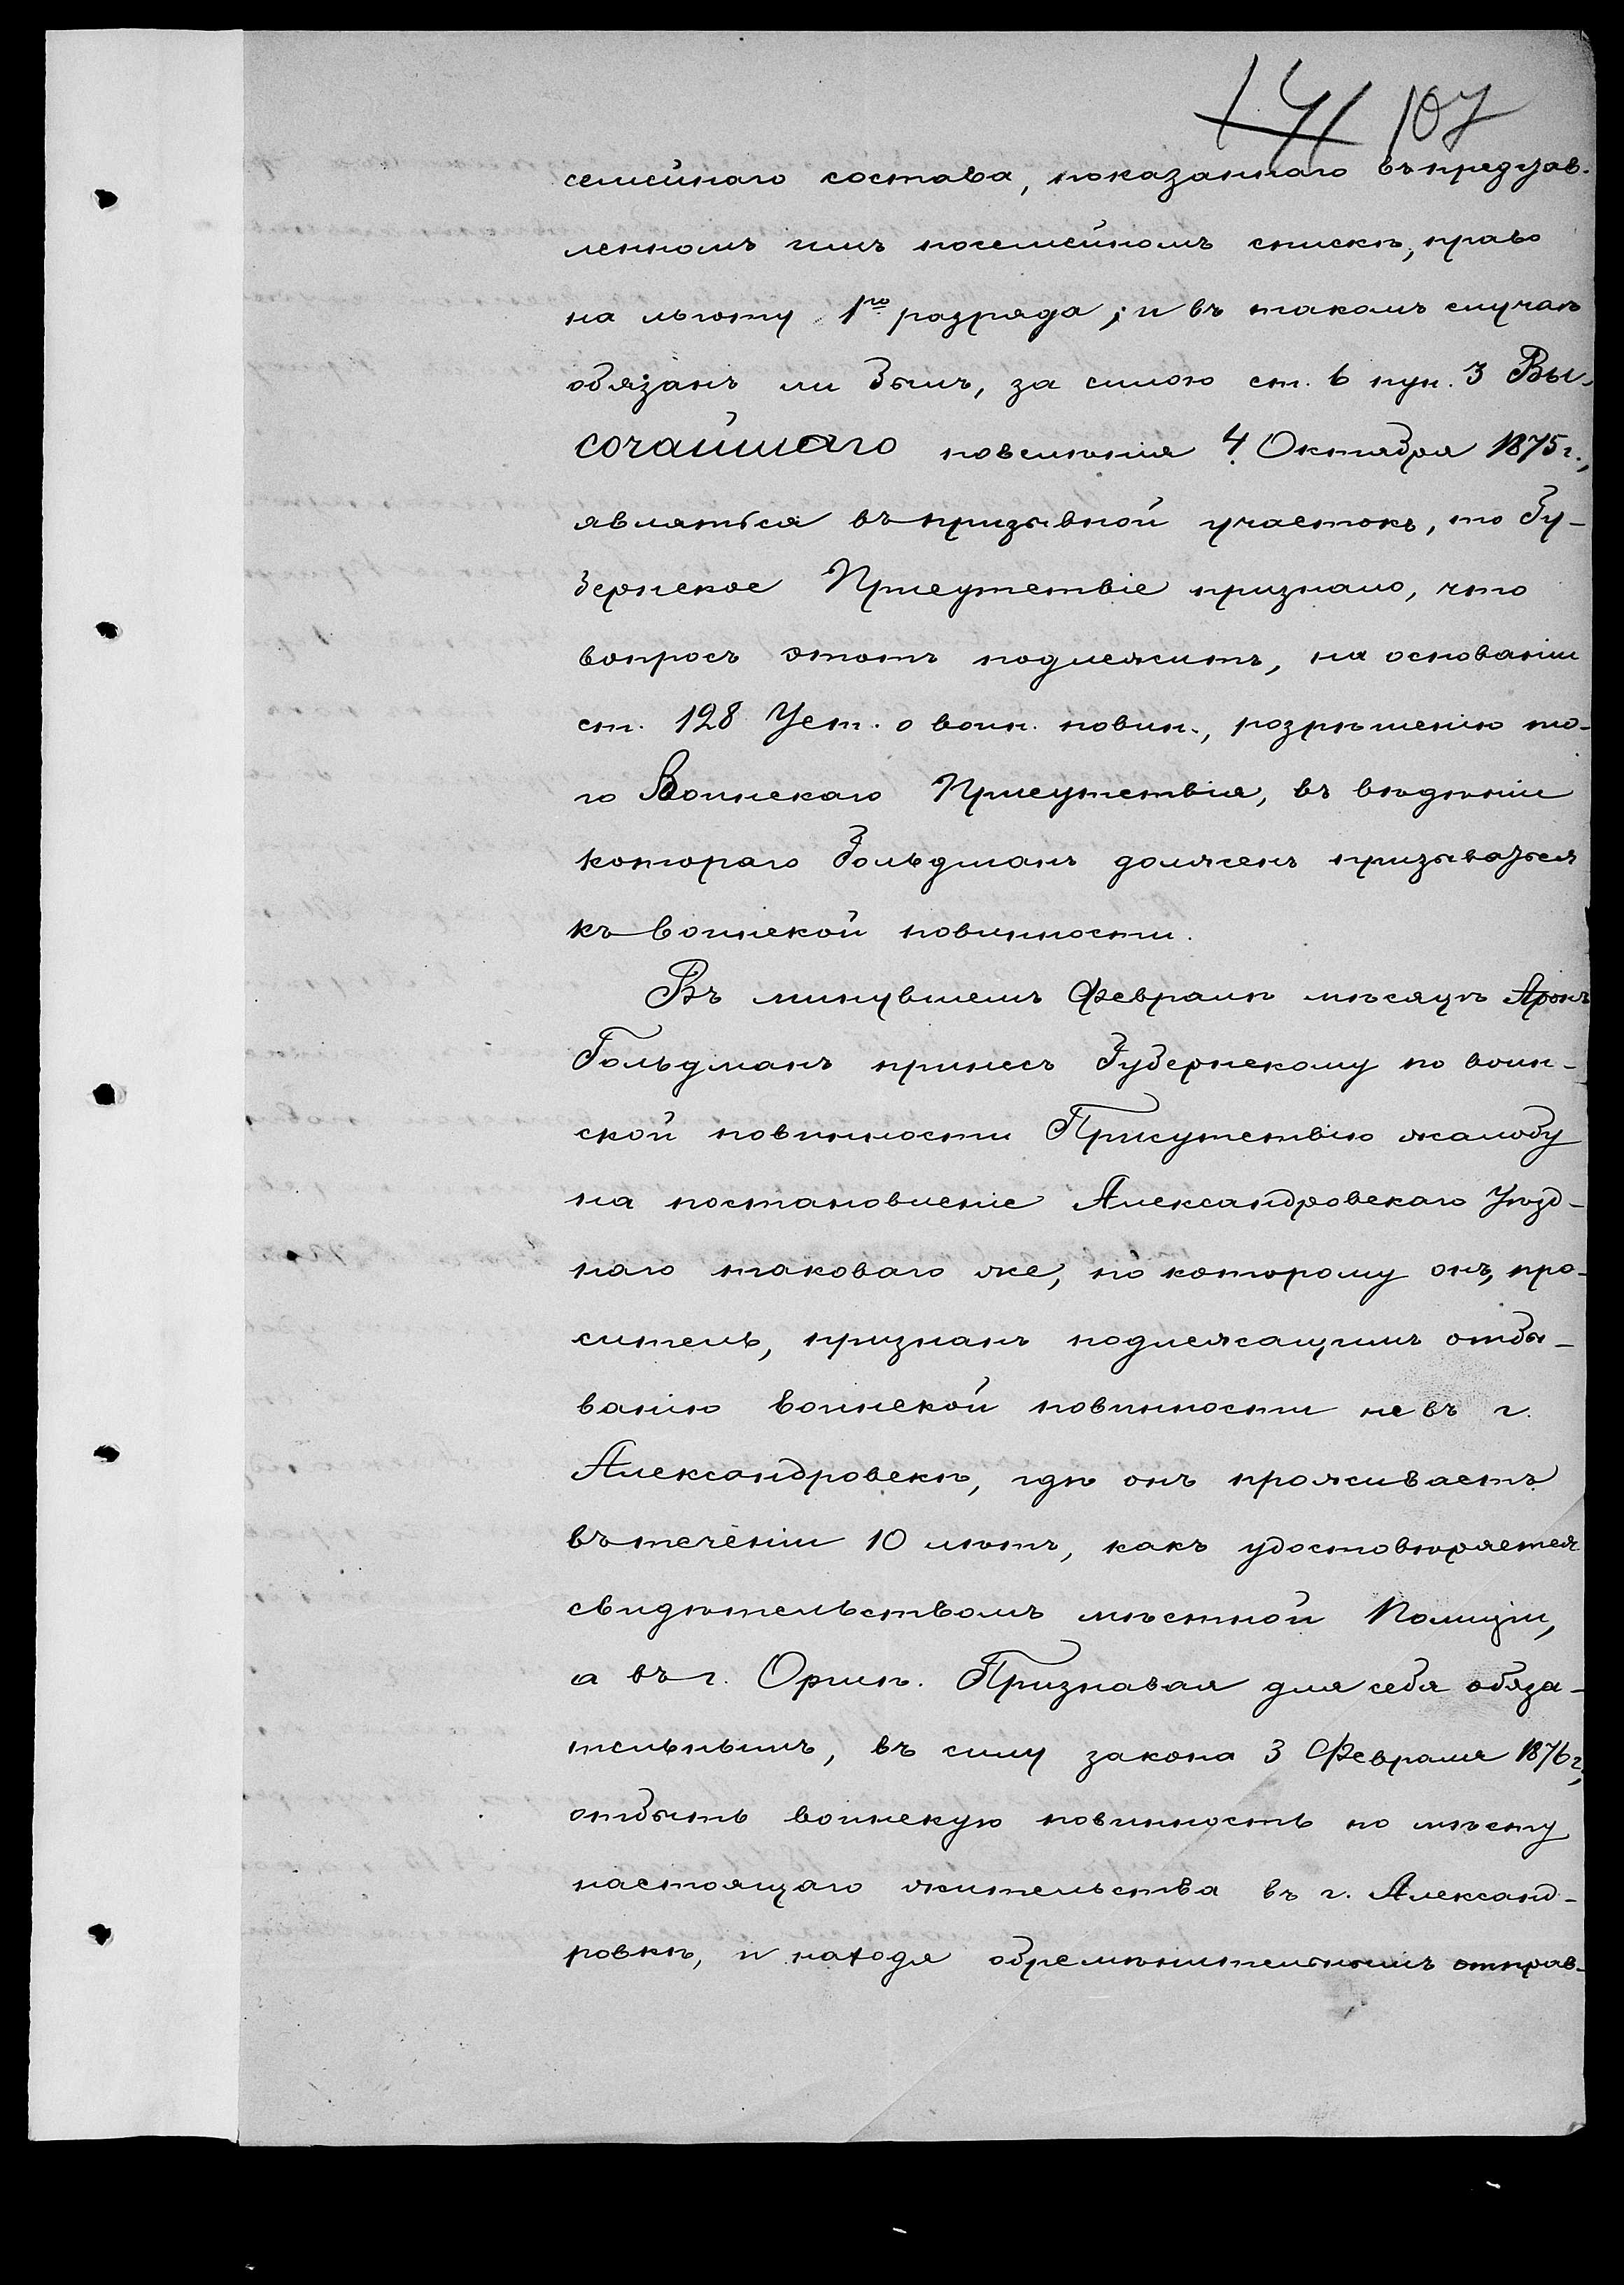 141 107
семейнаго состава, показаннаго въ предъяв-
ленномъ имъ посемейномъ спискѣ, право
на льготу 1го разряда; и въ такомъ случаѣ
обязанъ ли былъ, за силою ст. 6 пун. 3 Вы-
сочайшаго повелѣнія 4 Октября 1875 г.,
являться въ призывной участокъ, то Гу-
бернское Присутствіе признало, что
вопросъ этотъ подлежитъ, на основаніи
ст. 128 Уст. о воин. повин., разрѣшенію то-
го Воинскаго Присутствія, въ вѣдѣніи
котораго Гольдманъ долженъ призываться
къ воинской повинности.
Въ минувшемъ Февралѣ мѣсяцѣ Аронъ
Гольдманъ принесъ Губернскому по воин-
ской повинности Присутствію жалобу
на постановленіе Александровскаго Уѣзд-
наго таковаго же, по которому онъ, про-
ситель, признанъ подлежащимъ отбы-
ванію воинской повинности не въ г.
Александровскѣ, гдѣ онъ проживаетъ
въ теченіи 10 лѣтъ, какъ удостовѣряется
свидѣтельствомъ мѣстной Полиціи,
а въ г. Оршѣ. Признавая для себя обяза-
тельнымъ, въ силу закона 3 Февраля 1876 г.,
отбыть воинскую повинность по мѣсту
настоящаго жительства въ г. Александ-
ровкѣ, и находя обремѣнительнымъ отправ-